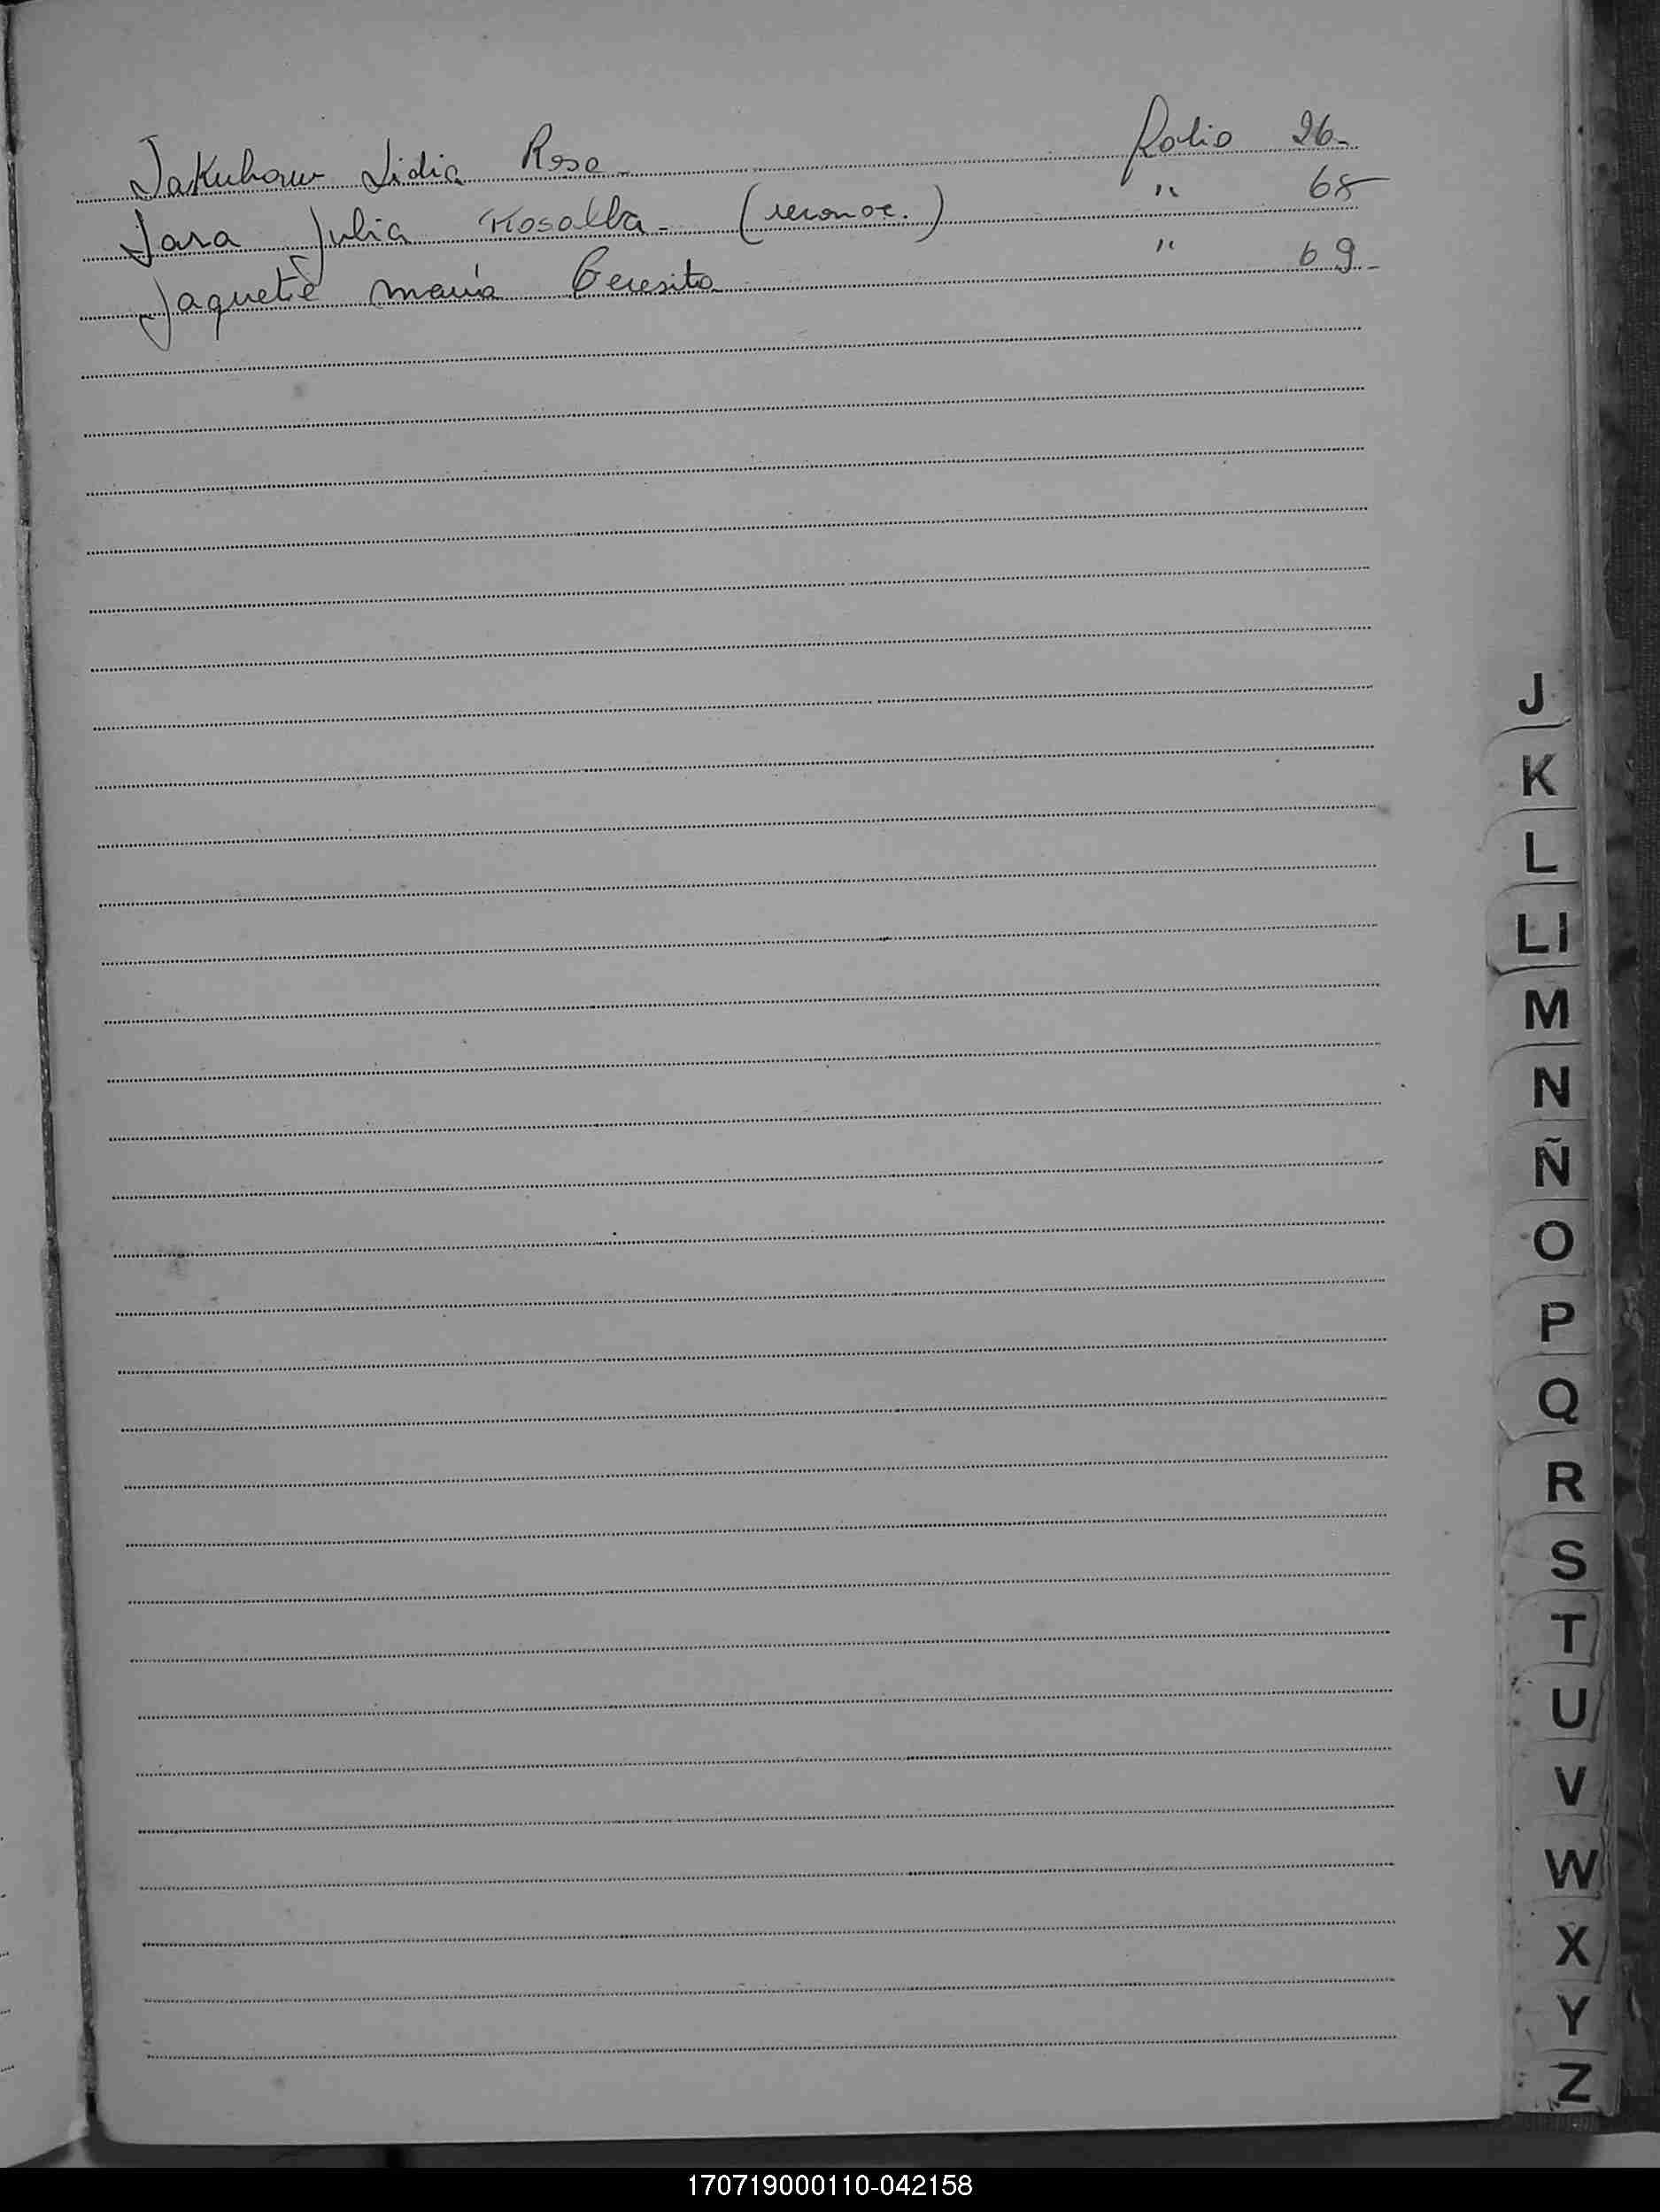 Jakubow Lidia Rosa - Folio 26-
Jara Julia Rosalba - (reconoc.) " 68
Jaqueté María Teresita " 69-
J
K
L
Ll
M
N
Ñ
O
P
Q
R
S
T
U
V
W
X
Y
Z
170719000110-042158